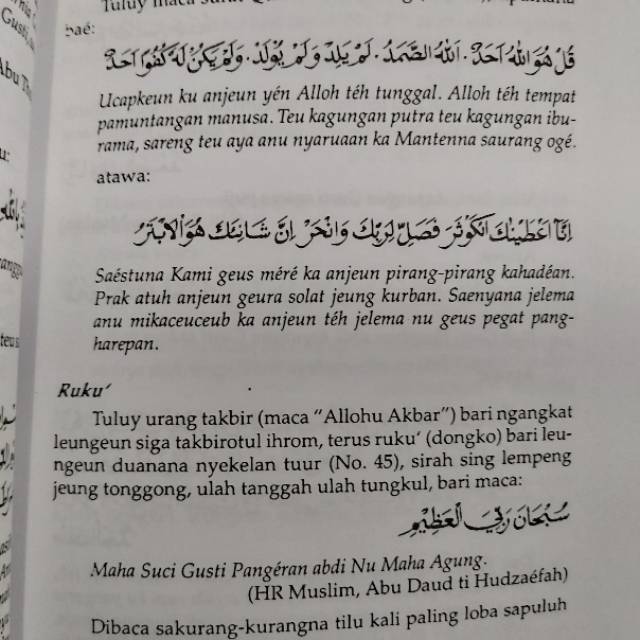 Tuluy maca surat
baé:
قُلْ هُوَ اللهُ اَحَدٌ. اَللهُ الصَّمَدُ. لَمْ يَلِدْ وَلَمْ يُوْلَدْ. وَلَمْ يَكُنْ لَهُ كُفُوًا اَحَدٌ
Ucapkeun ku anjeun yén Alloh téh tunggal. Alloh téh tempat
pamuntangan manusa. Teu kagungan putra teu kagungan ibu-
rama, sareng teu aya anu nyaruaan ka Mantenna saurang ogé.
atawa:
اِنَّا اَعْطَيْنٰكَ الْكَوْثَرَ فَصَلِّ لِرَبِّكَ وَانْحَرْ اِنَّ شَانِئَكَ هُوَ الْاَبْتَرُ
Saéstuna Kami geus méré ka anjeun pirang-pirang kahadéan.
Prak atuh anjeun geura solat jeung kurban. Saenyana jelema
anu mikaceuceub ka anjeun téh jelema nu geus pegat pang-
harepan.
Ruku‘
Tuluy urang takbir (maca "Allohu Akbar") bari ngangkat
leungeun siga takbirotul ihrom, terus ruku‘ (dongko) bari leu-
ngeun duanana nyekelan tuur (No. 45), sirah sing lempeng
jeung tonggong, ulah tanggah ulah tungkul, bari maca:
سُبْحَانَ رَبِّيَ الْعَظِيْمِ
Maha Suci Gusti Pangéran abdi Nu Maha Agung.
(HR Muslim, Abu Daud ti Hudzaéfah)
Dibaca sakurang-kurangna tilu kali paling loba sapuluh